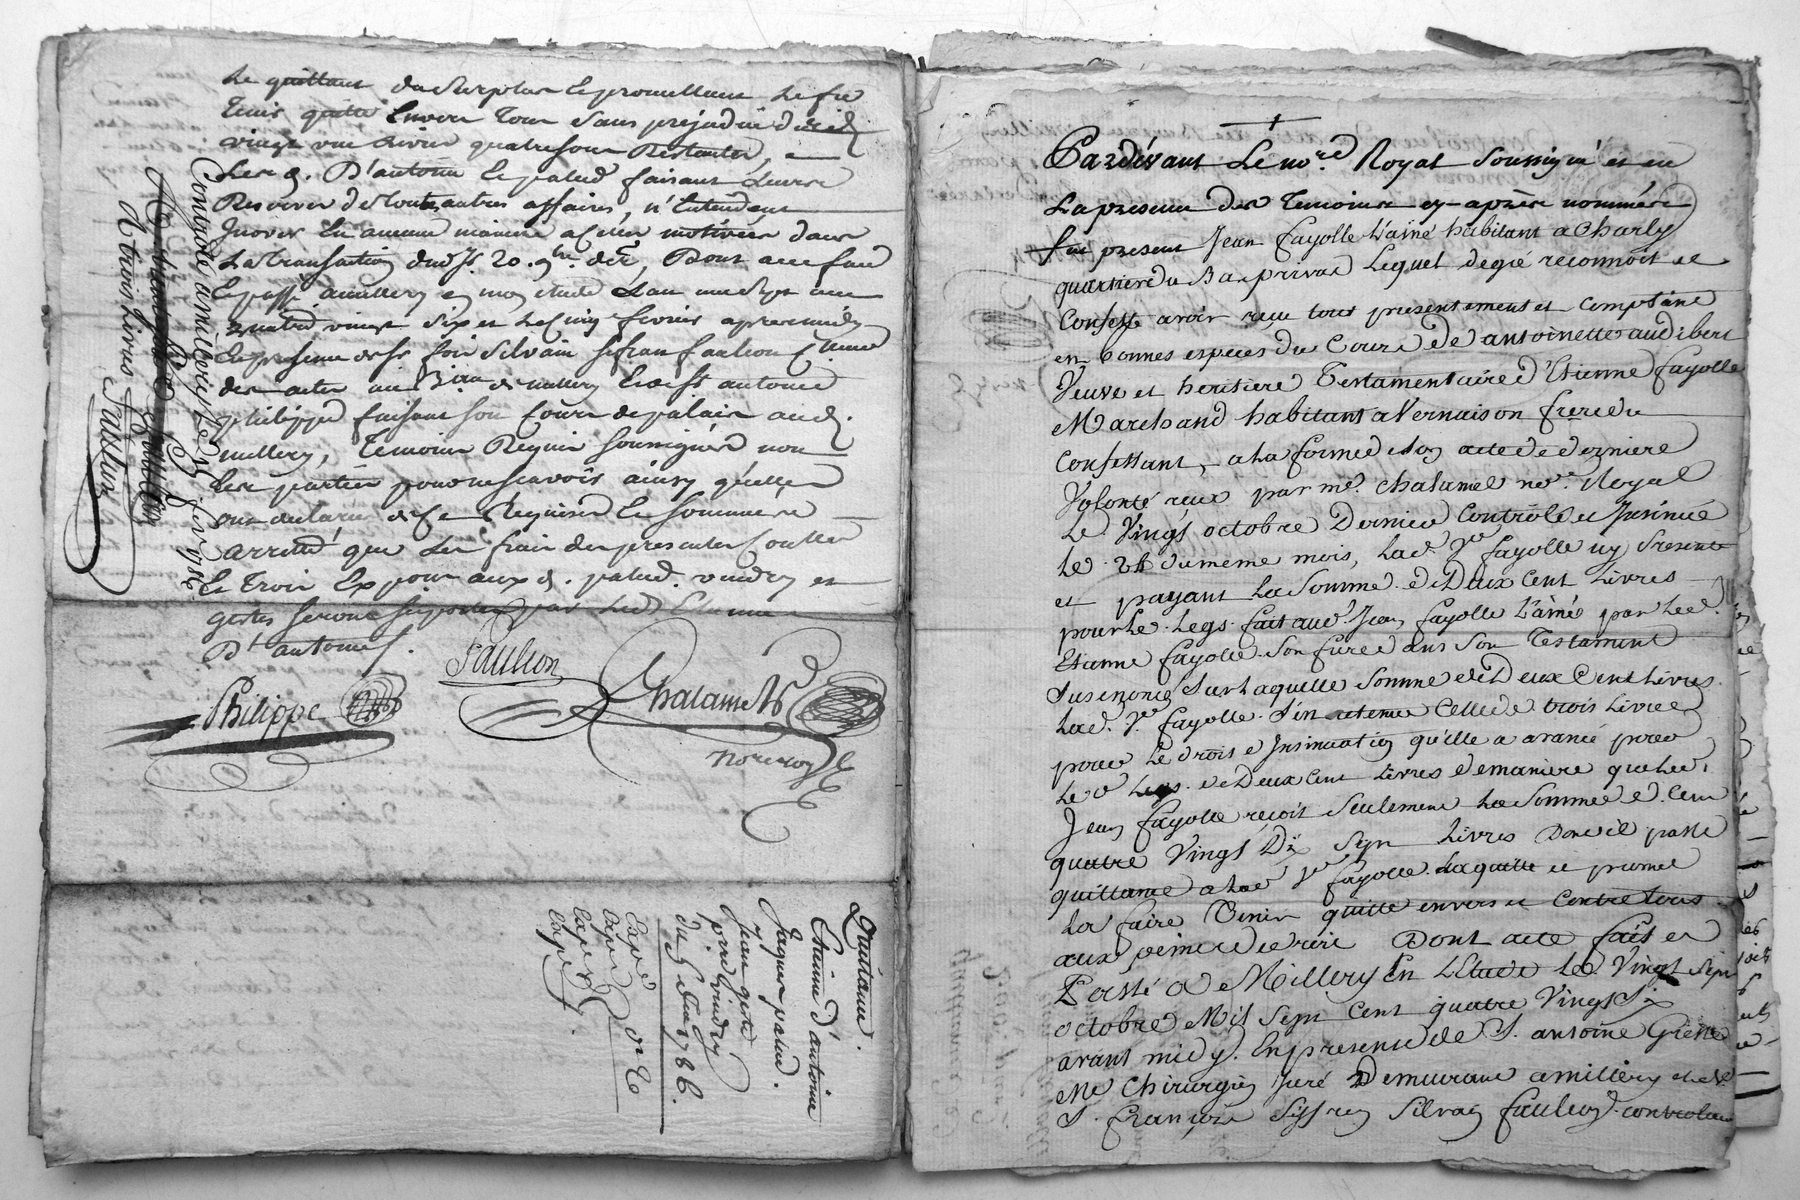 Le quittant du Surplus Et promettant Le fre
Tenir quitte Envers Tous Sans prejudice
vingt une Livres quatre sous Restantes,
Les d. D'antoine Et palud faisant
Reserves de toutes autres affaires, n'Entendent
Jnover En aucune maniere a Celles motivées dans
La transaction dud. J. 20. 9bre. der., Dont acte fait
Et passé a millery En mon etude L'an mil Sept cent
quatre vingt Six et Le Cinq fevrier apres midy
En presence de Sr. fois Silvain faulion
des actes au Bureau de millery Et de Sr. antoine
philippe faisant Son Cours de palais aud.
millery, Temoins Requis Soussignés non
Les parties pour ne scavoir ainsy qu'elles
ont declaré de Ce Requises Et Sommées
arretté que Les frais des presentes
Et trois Exp. pour aux d. palud. vindry et
gestes seront suportés par Led. Etienne
D'antoine.
Philippe
Faulion
Chalamel
No. royal
Controlé a millery Le 15 fevrier 1786
Reçu
trois Livres
Faulion
Quittance.
Etienne D'antoine
a
Jaques palud.
Jean geste
pierre vindry
du 5 fevrier 1786.
Expé
Expé
Expé
Expé
Pardevant Le nore. Royal Soussigné et en
La presence des Temoins cy-après nommés
fut present Jean Fayolle L'ainé habitant a Charly
quartier du Bas privas Lequel de gré reconnoit et
Confesse avoir reçu tout presentement et Comptant
en bonnes especes du Cours de antoinette audibert
Veuve et heritiere Testamentaire d'Etienne Fayolle
Marchand habitant a Vernaison frere du
Confessant, a la forme de son acte de derniere
Volonté reçu par me. Chalamel nore. Royal
Le Vingt octobre Dernier Controlé et Jnsinué
Le 24 du meme mois, Lad. Ve. Fayolle icy presente
et payant La Somme de Deux Cent Livres
pour Le Legs fait aud. Jean Fayolle L'ainé par Led.
Etienne Fayolle Son frere dans Son Testament
Susenoncé Sur Laquelle Somme de Deux Cent Livres.
Lad. Ve. Fayolle. S'en retenue Celle de trois Livres
pour Le droit d'Jnsinuation qu'elle a avancé pour
Le d Legs de Deux Cent Livres de maniere que Led.
Jean Fayolle reçoit Seulement La Somme de Cent
quatre Vingt Dix Sept Livres Dont il passe
quittance a Lad. Ve. Fayolle. Laquelle il promet
La faire Tenir quitte envers et Contre tous
aux peines de droit Dont acte fait et
Passé a Millery En L'Etude Le Vingt Sept
octobre Mil Sept Cent quatre Vingt Six
avant midy. En presence de S. antoine
Me Chirurgien Juré Demeurant a millery et de
S. François Silvain Faulion controleur